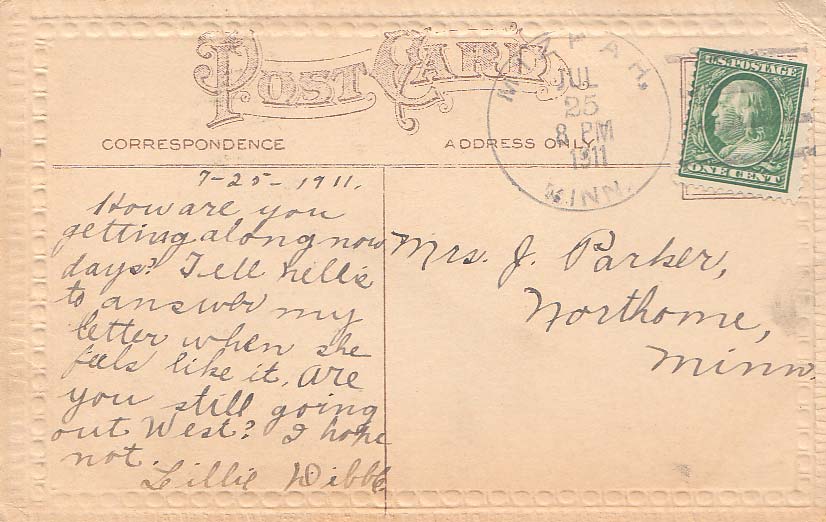 POST CARD
CORRESPONDENCE
ADDRESS ONLY
JUL
25
8 PM
1911
MINN.
U.S. POSTAGE
ONE CENT
7-25-1911.
How are you
getting along now
days? Tell
to answer my
letter when she
feels like it. Are
you still going
out West? I hope
not.
Lillie
Mrs. J. Parker,
Northome,
Minn.